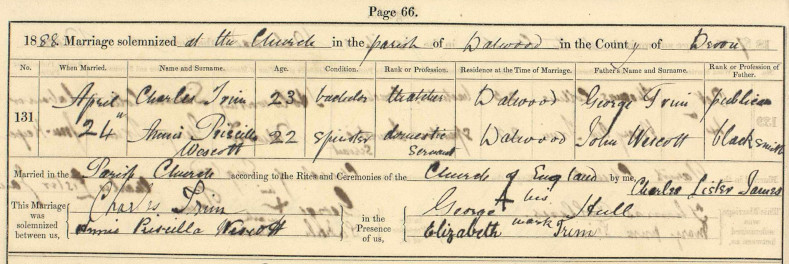 Page 66.
1888. Marriage solemnized at the Church in the parish of Dalwood in the County of Devon
No. When Married. Name and Surname. Age. Condition. Rank or Profession. Residence at the Time of Marriage. Father's Name and Surname. Rank or Profession of Father.
131 April 24th Charles Trim 23 bachelor thatcher Dalwood George Trim publican
Annie Priscilla Wescott 22 spinster domestic Servant Dalwood John Wescott blacksmith
Married in the Parish Church according to the Rites and Ceremonies of the Church of England by me, Charles Lister James
This Marriage was solemnized between us, Charles Trim in the Presence of us, George his + mark Hull
Annie Priscilla Wescott Elizabeth Trim